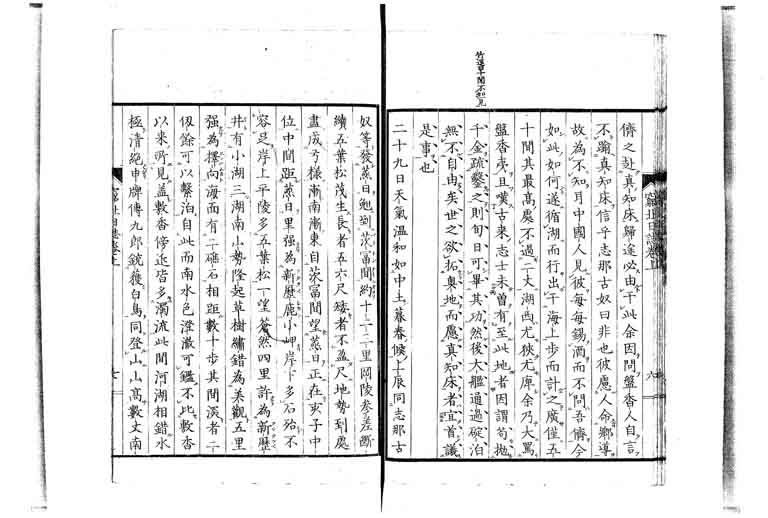 竹逕曰十間不如見
儕之赴真知床歸途必由于此余因問盤香人自言
不踰真知床信乎志那古奴曰非也彼慮人命鄉導
故為不知耳中國人見彼每每錫酒而不問吾儕今
如此如何遂循湖而行出于海上步而計之廣僅五
十間其最高處不過二大湖西尤狹尤庳余乃大罵
盤香夷且嘆古來志士未曽有至此地者因謂苟拋
千金疏鑿之則旬日可畢其功然後大艦通過碇泊
無不自由矣世之欲拓輿地而慮真知床者宜首議
是事也
二十九日天氣溫和如中土暮春候上辰同志那古
奴等發蒸日勉到茨冨間約十二三里岡陵參差斷
續五葉松茂生長者五六尺矮者不盈尺地勢到處
盡成弓樣漸南漸東自茨冨間望蒸日正在亥子中
位中間距蒸日里强為新歷鹿小岬岸下多石殆不
容足岸上平陵多五葉松一望蒼然四里許為新歷
井有小湖三湖南小勢隆起草樹繡錯為美觀五里
强為擇向海面有二礁石相距數十步其間淡者二
仭餘可以繫泊自此而南水色澄澈可鑑不比數香
以來所見蓋數香傍近皆多濁流此間河湖相錯水
極清絕申牌傳九郎銃獲白鳥同登山山高數丈南
窮北日誌卷上
六
窮北日誌卷上
七